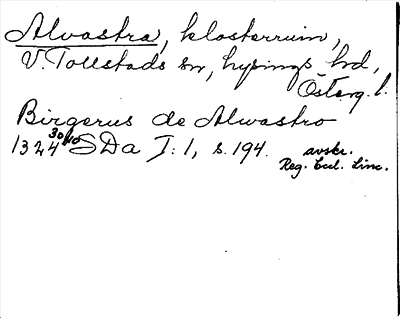 Alvastra, klosterruin,
V. Tollstads sn, Lysings hd,
Österg. l.
Birgerus de Alwastro
1324 30/10 SDa I: 1, s. 194. avskr.
Reg. Eccl. Linc.